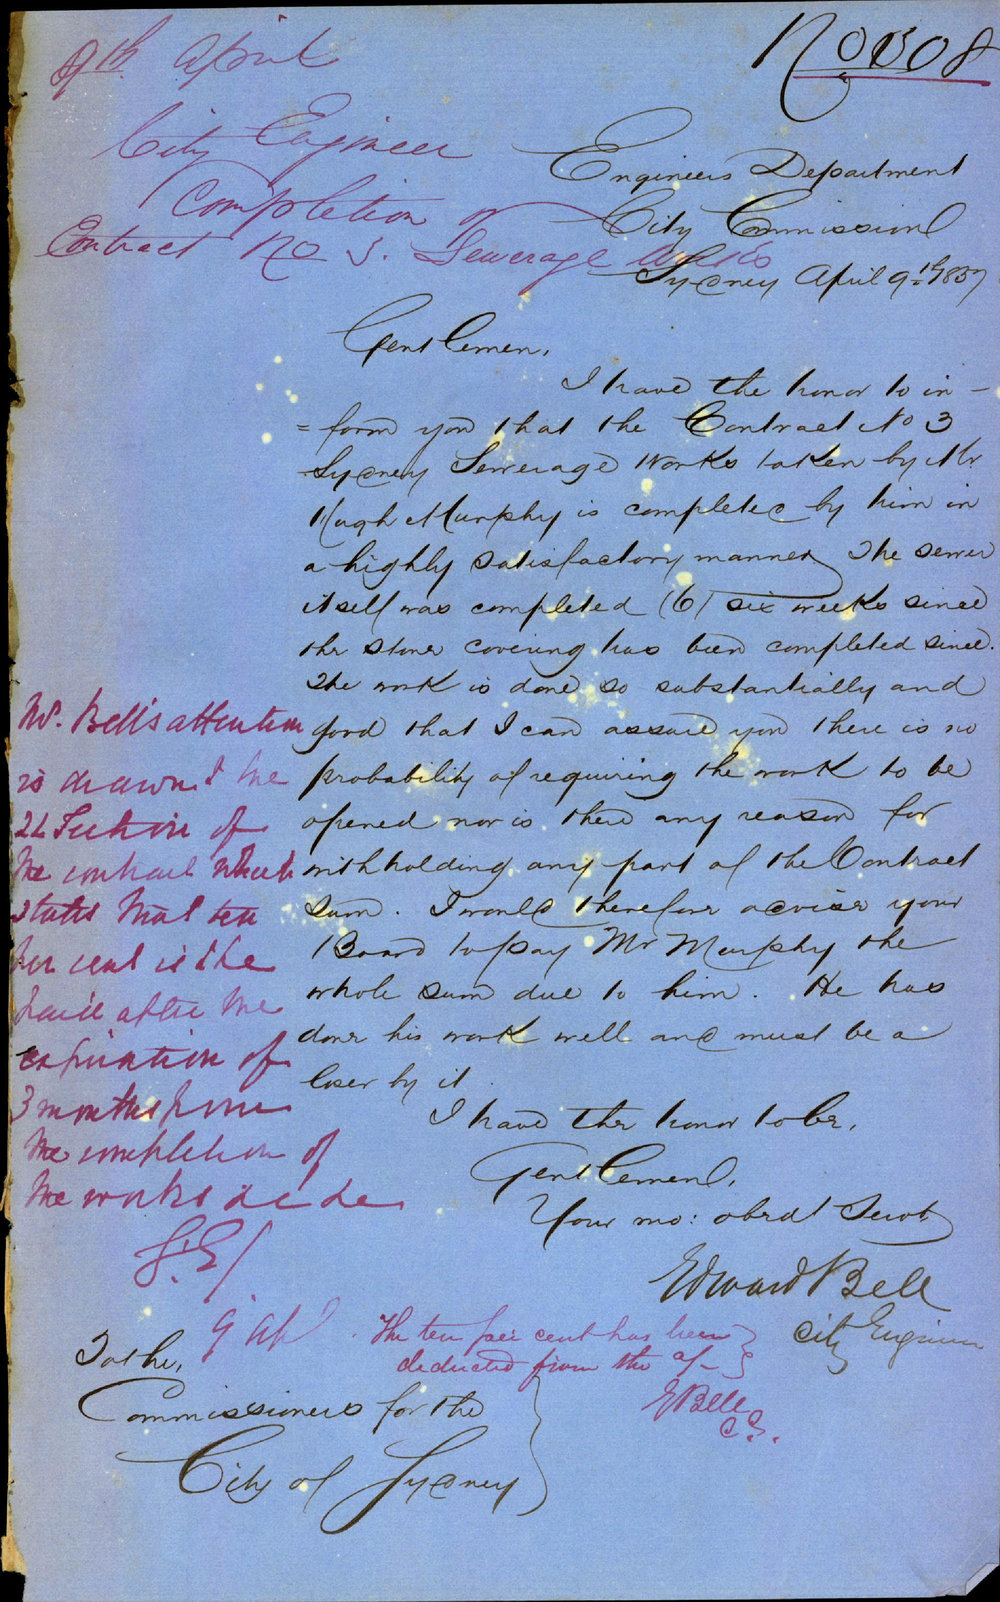 9th April
City Engineer
Completion of
Contract No 3. Sewerage Works
Engineers Department
City Commission
Sydney April 9th 1857
Gentlemen,
I have the honor to in-
=form you that the Contract No 3
Sydney Sewerage Works taken by Mr
Hugh Murphy is completed by him in
a highly satisfactory manner The sewer
itself was completed (6) six weeks since
the stone covering has been completed since.
The work is done so substantially and
good that I can assure you there is no
probability of requiring the work to be
opened nor is there any reason for
withholding any part of the Contract
Sum. I would therefore advise your
Board to pay Mr Murphy the
whole sum due to him. He has
done his work well and must be a
loser by it.
I have the honor to be,
Gentlemen,
Your mo: obedt Servt
Edward Bell
City Engineer
Mr. Bell's attention
is drawn to the
Section of
the contract which
states that ten
per cent is to be
paid after the
expiration of
3 months from
the completion of
the works
9 Apl
The ten per cent has been
deducted from the a/-
EBell
C.E.
To the,
Commissioners for the
City of Sydney